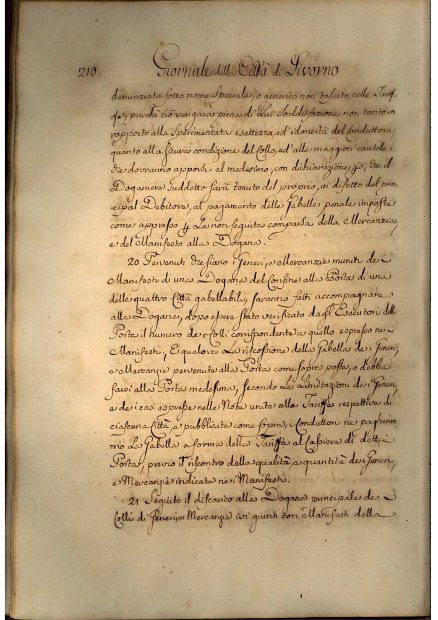 210 Giornale della Città di Livorno
denunziata sotto nome speciale, o generico non tassato nelle Tarif-
fe, purchè ciò venga a piena di Lui soddisfazione, non tanto in
rapporto alla sperimentata esattezza, ed idoneità del Conduttore,
quanto alla sicura condizione del Collo, ed alle maggiori cautele
che dovranno apporsi al medesimo, con dichiarazione, che il
Doganiere suddetto sarà tenuto del proprio, in difetto del prin-
cipal Debitore, al pagamento delle Gabelle penali imposte
come appresso la non seguita comparsa della Mercanzia,
e del Manifesto alla Dogana.
20 Pervenuti che siano Generi, e Mercanzie muniti de
Manifesti di una Dogana del Confine alla Porta di una
delle quattro Città gabellabili, saranno fatti accompagnare
alla Dogana, dopo essere stato verificato dagl'Esecutori della
Porta il numero de Colli corrispondente a quello espresso nei
Manifesti, E qualora la riscossione della Gabella dei Generi,
e Mercanzie pervenute alla Porta come sopra posta, o debba
farsi alla Porta medesima, secondo le Limitazioni dei Generi,
e dei casi espresse nelle Note unite alle Tariffe respettive di
ciascuna Città, e pubblicate come sopra, i Conduttori ne pagheran-
no la Gabella a forma della Tariffa al Cassiere di detta
Porta, previo il riscontro della qualità, e quantità dei Generi,
e Mercanzie indicate nei Manifesti.
21 Seguito il discarico alla Dogana principale de
Colli di Generi, e Mercanzie ivi giunti con Manifesti della